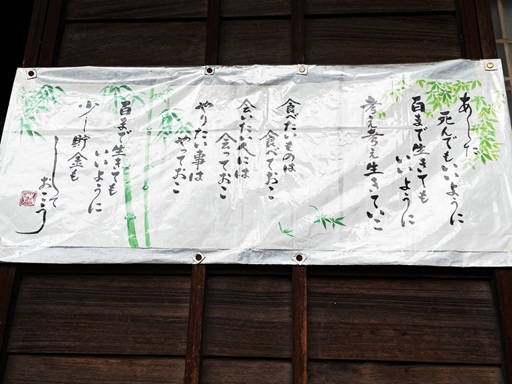 あした
死んでもいいように
百まで生きても
いいように
考え考え生きていこ
食べたいものは
食べておこ
会いたい人には
会っておこ
やりたい事は
やっておこ
百まで生きても
いいように
少し貯金も
しておこう